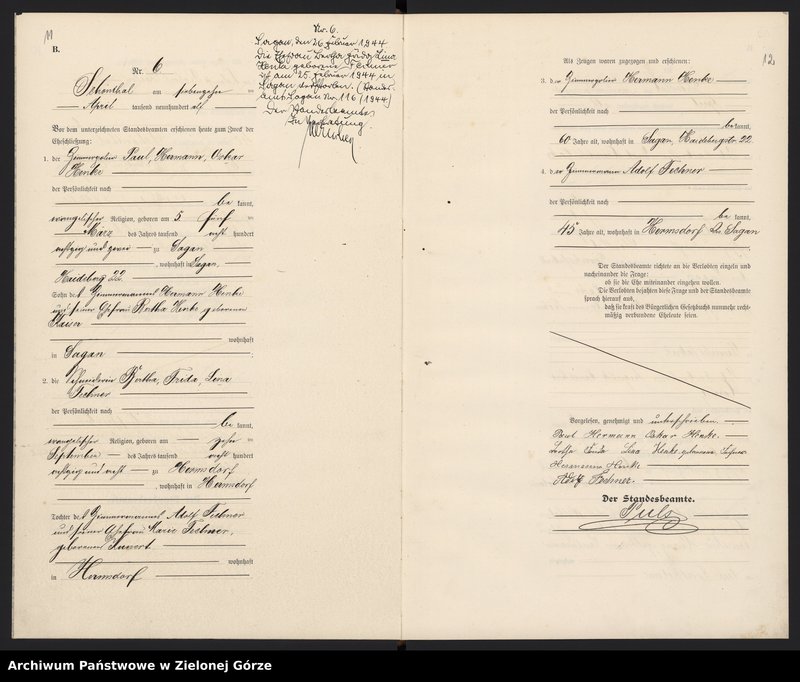 11
B.
Nr. 6
am siebenzehn ten
April tausend neunhundert elf
Vor dem unterzeichneten Standesbeamten erschienen heute zum Zweck der
Eheschließung:
1. der Zimmerpolier Paul, Hermann, Oskar
Henke
der Persönlichkeit nach
be kannt,
evangelischer Religion, geboren am 5 fünf ten
März des Jahres tausend acht hundert
achtzig und zwei zu Sagan
, wohnhaft in Sagan,
Haideberg 22.
Sohn des Zimmermanns Hermann Henke
und seiner Ehefrau Bertha Henke, geborenen
wohnhaft
in Sagan
2. die Bertha, Frida, Lena
Fechner
der Persönlichkeit nach
be kannt,
evangelischer Religion, geboren am zehn ten
September des Jahres tausend acht hundert
achtzig und acht zu Hermsdorf
, wohnhaft in Hermsdorf
Tochter des Zimmermanns Adolf Fechner
und seiner Ehefrau Marie Fechner,
geborenen
wohnhaft
in Hermsdorf
Nr. 6.
Sagan, den 26. Februar 1944
Die Ehefrau Bertha Frida Lina
Henke geborene Fechner
ist am 25. Februar 1944 in
Sagan verstorben. (Standes-
amt Sagan Nr. 116/1944)
Der Standesbeamte
In Vertretung
12
Als Zeugen waren zugezogen und erschienen:
3. der Zimmerpolier Hermann Henke
der Persönlichkeit nach
be kannt,
60 Jahre alt, wohnhaft in Sagan, Haidebergstr. 22
4. der Zimmermann Adolf Fechner
der Persönlichkeit nach
be kannt,
45 Jahre alt, wohnhaft in Hermsdorf Kr. Sagan
Der Standesbeamte richtete an die Verlobten einzeln und
nacheinander die Frage:
ob sie die Ehe miteinander eingehen wollen.
Die Verlobten bejahten diese Frage und der Standesbeamte
sprach hierauf aus,
daß sie kraft des Bürgerlichen Gesetzbuchs nunmehr recht-
mäßig verbundene Eheleute seien.
Vorgelesen, genehmigt und unterschrieben.
Paul Hermann Oskar Henke.
Bertha Frida Lena Henke geborene Fechner
Hermann Henke
Adolf Fechner.
Der Standesbeamte.
Archiwum Państwowe w Zielonej Górze